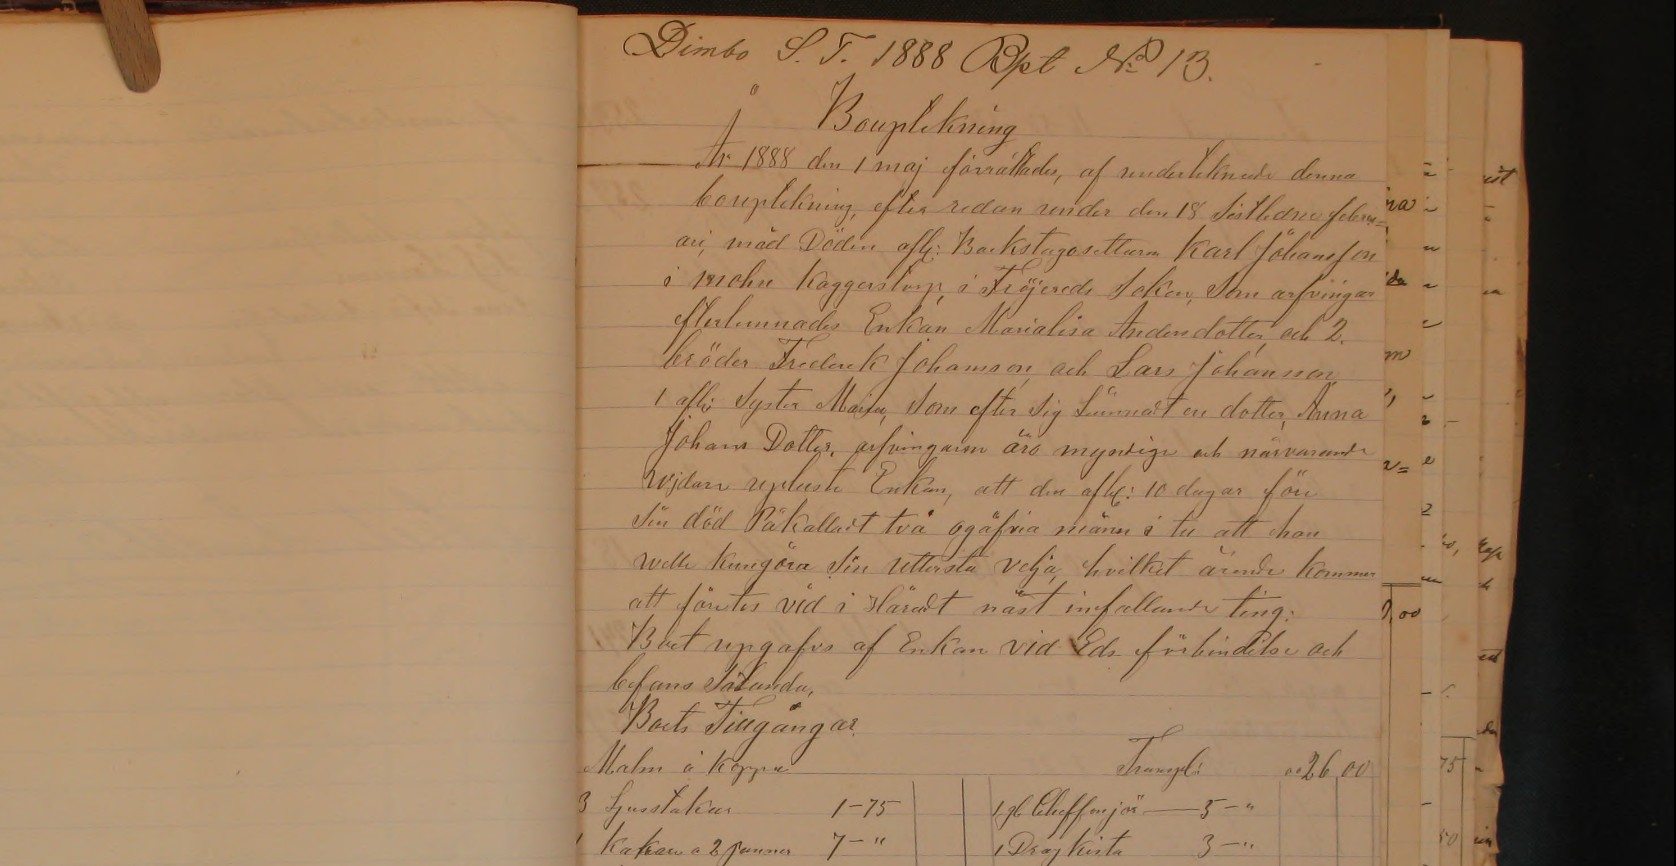 Dimbo S. T. 1888 Bpt No 13.
Bouptekning
År 1888 den 1 maj förrättades, af underteknade denna
bouptekning, efter redan under den 18 sistledne febru=
ari, med Döden afl: Backstugosittaren Karl Johansson
i mohn Kaggerstorp, i Fröjereds Soken, Som arfvingar
efterlemnades Enkan Marialisa Andersdotter, och 2.
bröder Frederek Johansson, och Lars Johansson
1 afl: Syster Maija, Som efter Sig Lämnadt en dotter, Anna
Johans Dotter, arfvingarna äro myndige och närvarande
Vijdare upliste Enkan, att den afl: 10 dagar före
Sin död Påkalladt två ogäfvia männ i tu att han
welle kungöra Sin Uttersta Velja, hvilket ärende kommer
att företes vid i Häradt näst infallande ting:
Boet upgafvs af Enkan vid Eds förbindelse och
befans Sålunda,
Boets Tillgångar
Malm o Koppar
Transpt: 26 00
3 Ljusstakar 1-75
1 Cheffonjör 5-"
1 Kakar o 2 pannor 7-"
1 Dragkista 3-"